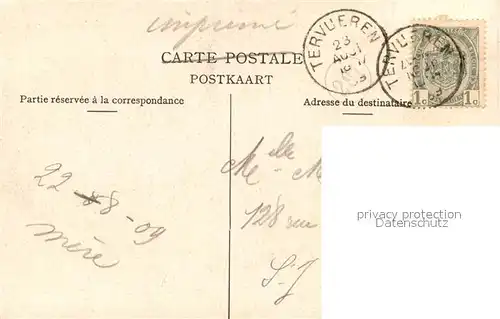 imprimé
CARTE POSTALE
POSTKAART
TERVUEREN
23
AOUT
TERVUEREN
1c 1c
Partie réservée à la correspondance
Adresse du destinataire
22-8-09
mère
Melle M
128 rue
St-J
privacy protection
Datenschutz